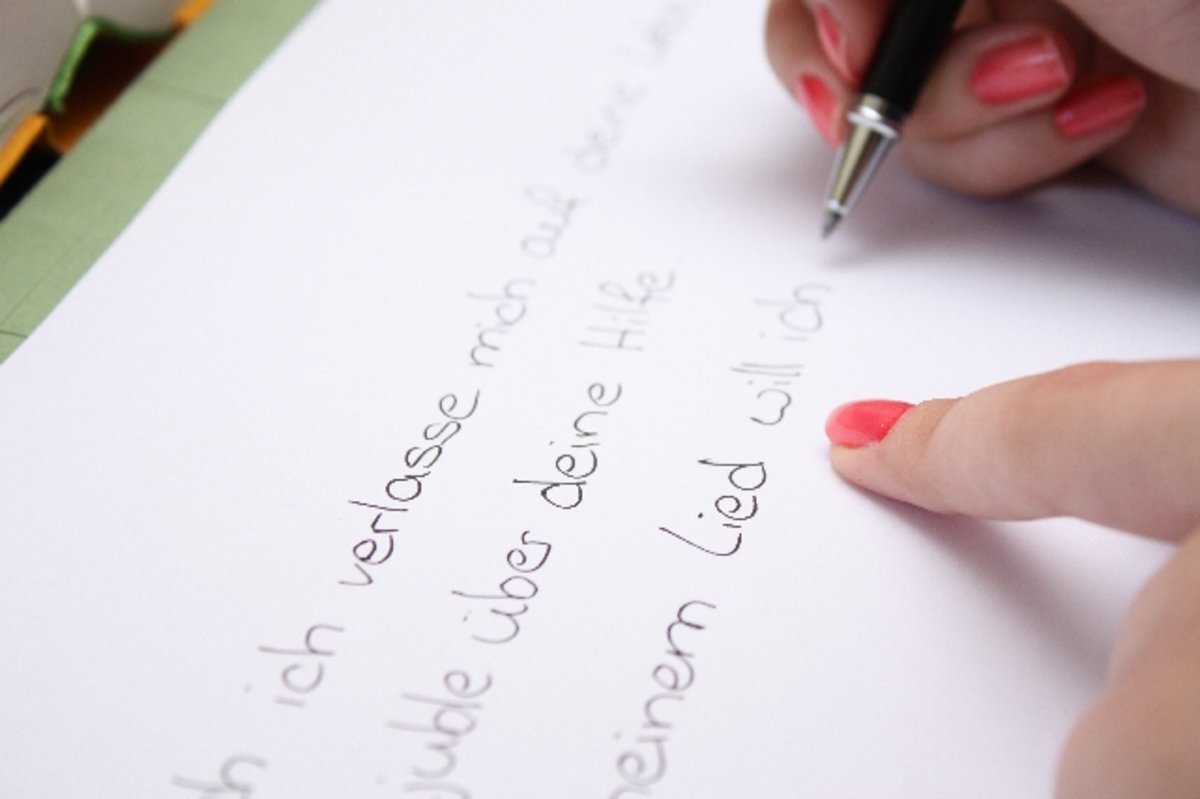 ich verlasse mich auf deine
über deine Hilfe
Lied will ich